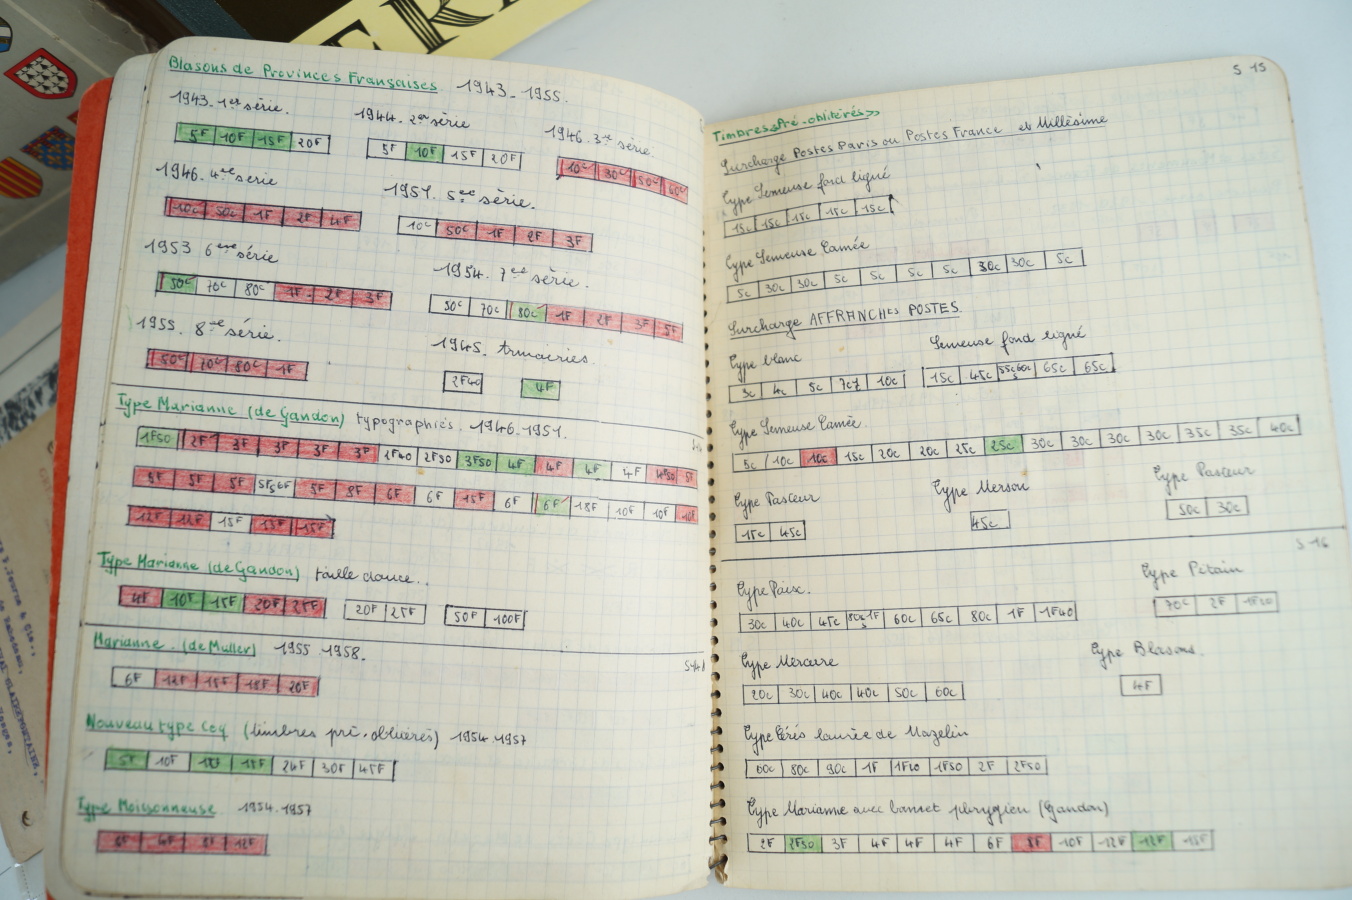 Blasons de Provinces Françaises 1943-1955.
1943. 1ere série.
5F 10F 15F 20F
1944. 2eme série
5F 10F 15F 20F
1946. 3eme série.
10c 30c 50c 60c
1946. 4eme serie
10c 50c 1F 2F 4F
1951. 5eme série.
10c 50c 1F 2F 3F
1953 6eme série
50c 70c 80c 1F 2F 3F
1954. 7eme série.
50c 70c 80c 1F 2F 3F 5F
1955. 8eme série.
50c 70c 80c 1F
1945. Armoiries.
2F40 4F
Type Marianne (de Gandon) typographiés. 1946-1951.
1F50 2F 3F 3F 3F 3F 2F40 2F50 3F50 4F 4F 4F 4F 4F50 5F
5F 5F 5F 5F 8F 6F 6F 15F 6F 6F 18F 10F 10F 10F
12F 12F 15F 15F 15F
Type Marianne (de Gandon) taille douce..
4F 10F 15F 20F 25F 20F 25F 50F 100F
Marianne. (de Muller) 1955-1958.
6F 12F 15F 18F 20F
Nouveau type Coq (timbres pré-oblitérés) 1954-1957
5F 10F 15F 24F 30F 45F
Type Moissonneuse 1954-1957
6F 4F 8F 12F
S 15
Timbres «Pré-oblitérés»
Surcharge Postes Paris ou Postes France et Millésime
Type Semeuse fond ligné
15c 15c 15c 15c 15c
Type Semeuse Camée
5c 30c 30c 5c 5c 5c 5c 30c 30c 5c
Surcharge AFFRANCHts POSTES.
Type blanc
3c 4c 5c 7c½ 10c
Semeuse fond ligné
15c 45c 55c60c 65c 65c
Type Semeuse Camée.
5c 10c 10c 15c 20c 20c 25c 25c 30c 30c 30c 30c 35c 35c 40c
Type Pasteur
15c 45c
Type Merson
45c
Type Pasteur
50c 30c
S 16
Type Paix.
30c 40c 45c 80c-1F 60c 65c 80c 1F 1F40
Type Pétain
70c 2F 1F20
Type Mercure
20c 30c 40c 40c 50c 60c
Type Blasons.
4F
Type Cérès laurée de Mazelin
60c 80c 90c 1F 1F20 1F50 2F 2F50
Type Marianne avec bonnet phrygien (Gandon)
2F 2F50 3F 4F 4F 4F 6F 8F 10F 12F 12F 15F